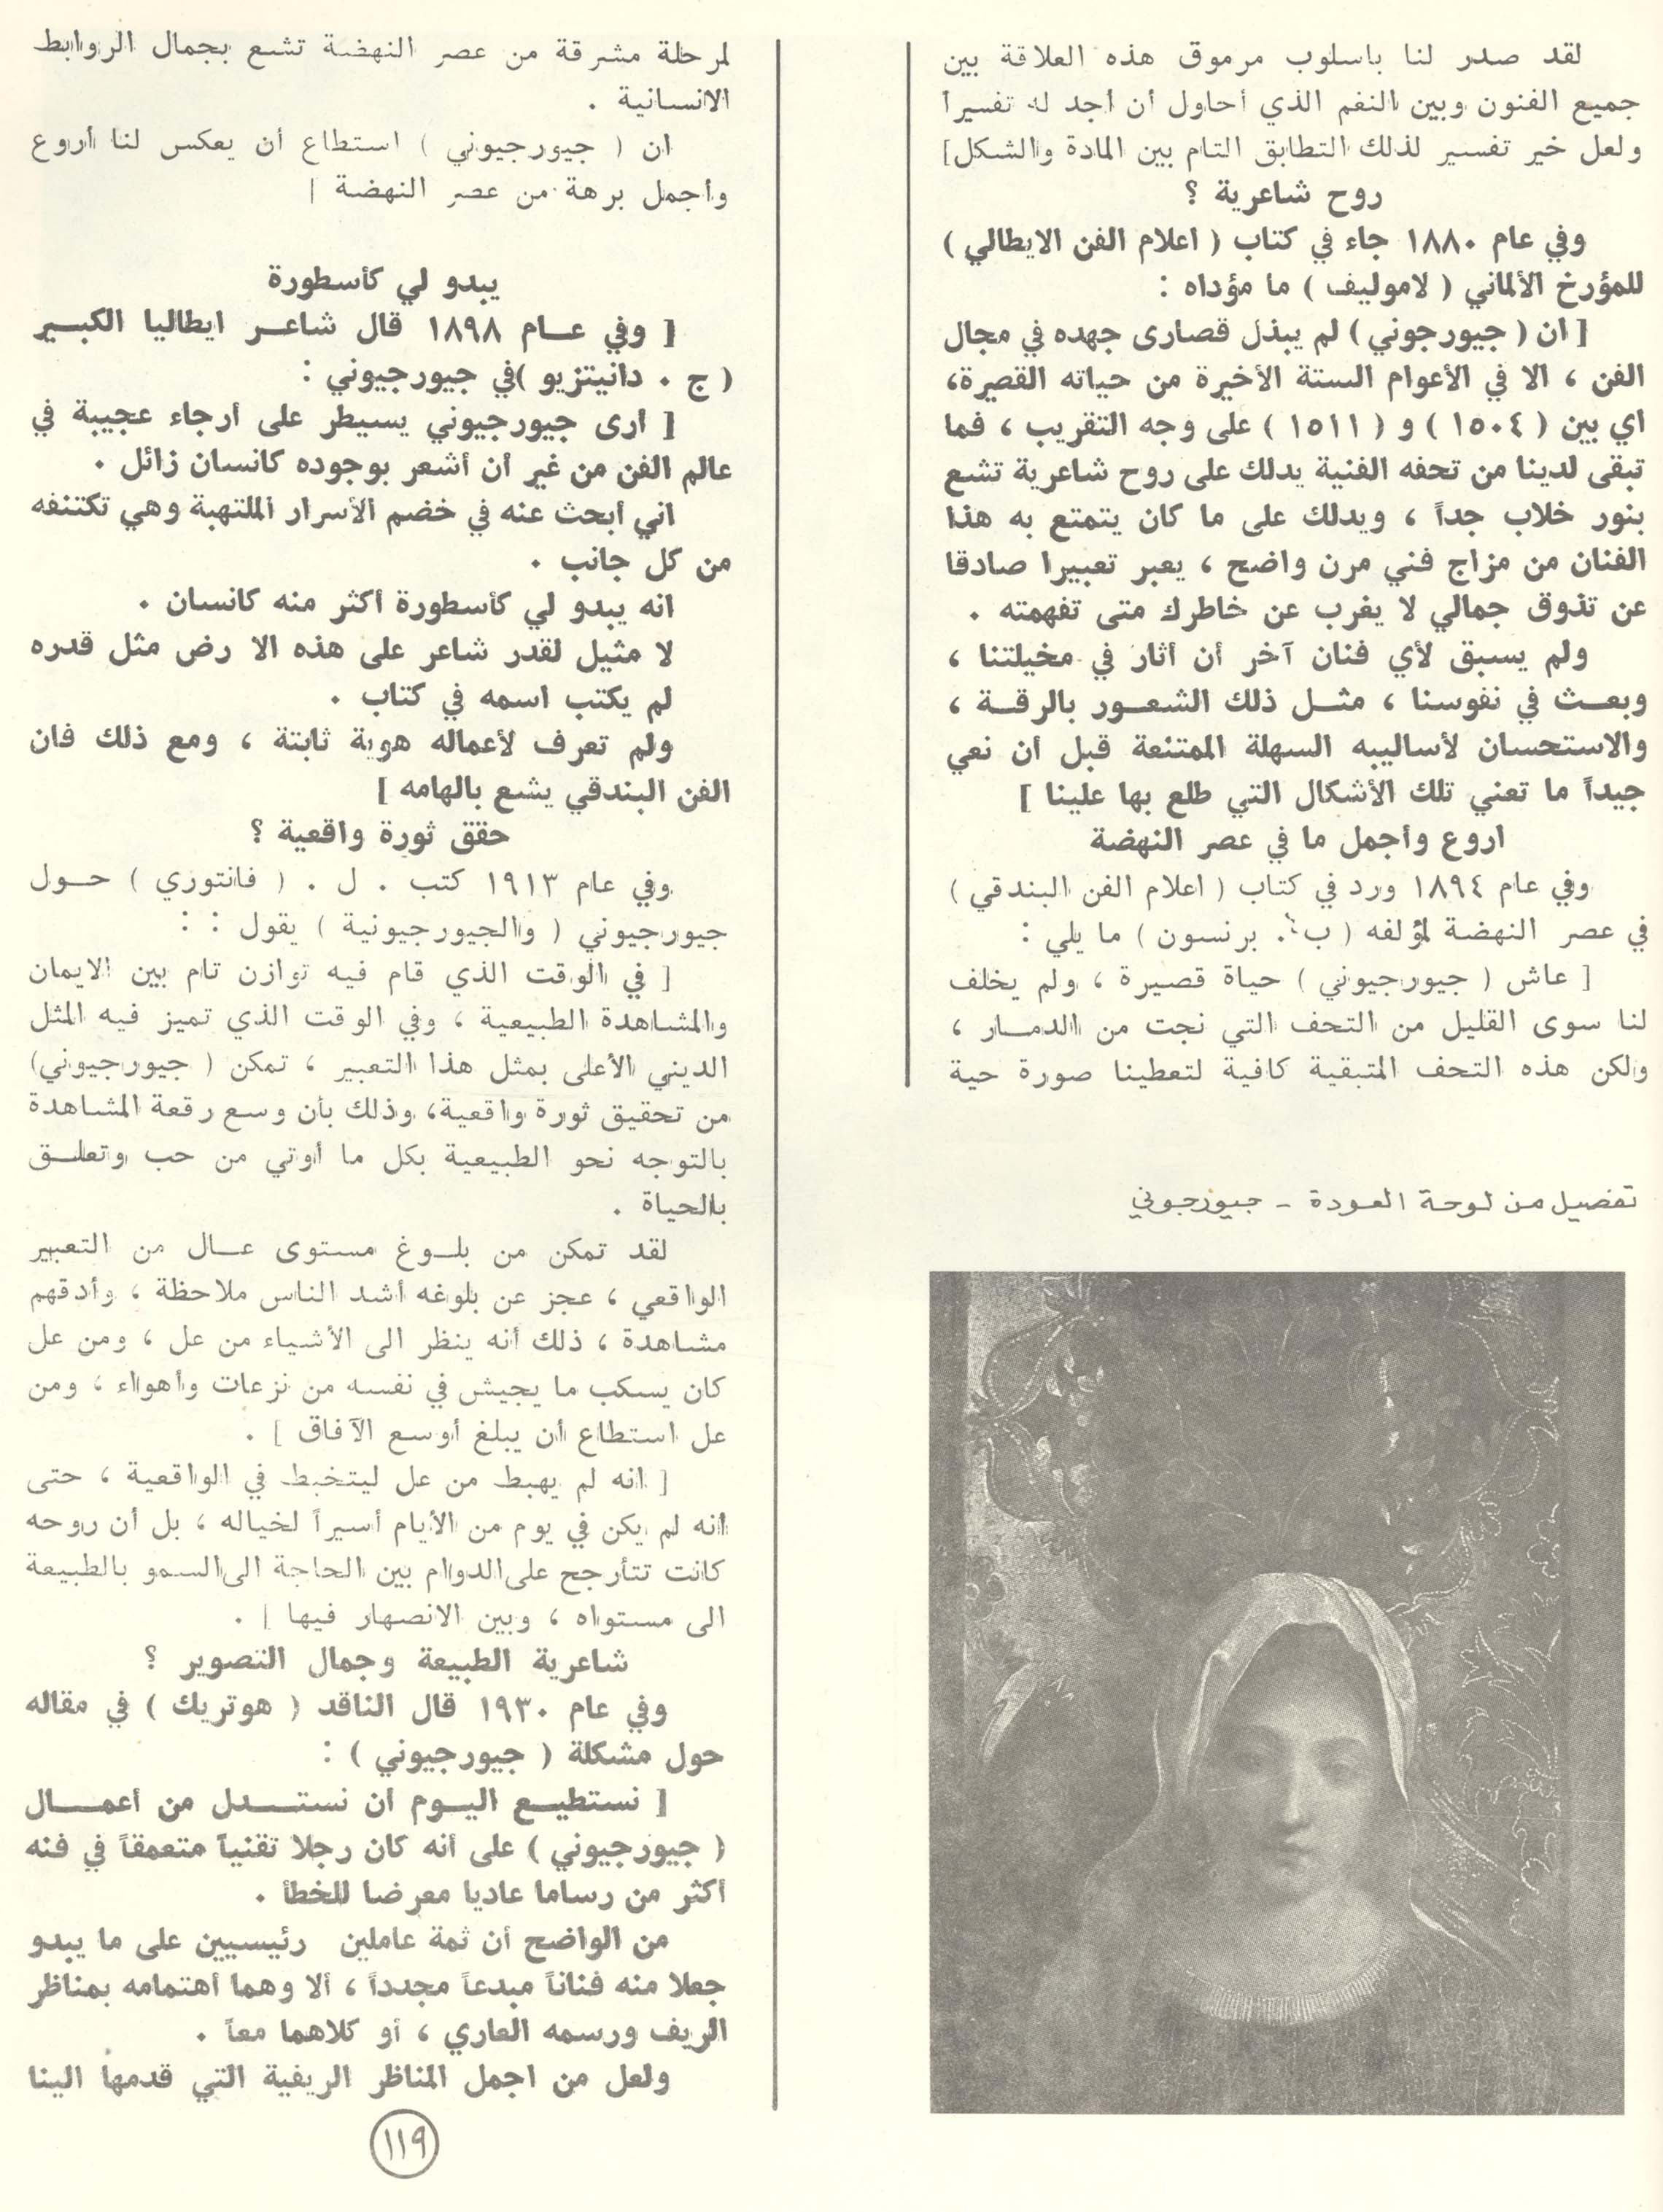 لقد صدر لنا باسلوب مرموق هذه العلاقة بين
جميع الفنون وبين النغم الذي أحاول أن أجد له تفسيراً
ولعل خير تفسير لذلك التطابق التام بين المادة والشكل]
روح شاعرية ؟
وفي عام ١٨٨٠ جاء في كتاب ( اعلام الفن الايطالي )
للمؤرخ الألماني ( لاموليف ) ما مؤداه :
[ ان ( جيورجوني ) لم يبذل قصارى جهده في مجال
الفن ، الا في الأعوام الستة الأخيرة من حياته القصيرة،
اي بين ( ١٥٠٤ ) و ( ١٥١١ ) على وجه التقريب ، فما
تبقى لدينا من تحفه الفنية يدلك على روح شاعرية تشع
بنور خلاب جداً ، ويدلك على ما كان يتمتع به هذا
الفنان من مزاج فني مرن واضح ، يعبر تعبيرا صادقا
عن تذوق جمالي لا يغرب عن خاطرك متى تفهمته .
ولم يسبق لأي فنان آخر أن أثار في مخيلتنا ،
وبعـث في نفوسنا ، مثـل ذلك الشعـور بالرقـة ،
والاستحسان لأساليبه السهلة الممتنعة قبل أن نعي
جيداً ما تعني تلك الأشكال التي طلع بها علينا ]
اروع وأجمل ما في عصر النهضة
وفي عام ١٨٩٤ ورد في كتاب ( اعلام الفن البندقي )
في عصر النهضة لمؤلفه ( ب . برنسون ) ما يلي :
[ عاش ( جيورجيوني ) حياة قصيرة ، ولم يخلف
لنا سوى القليل من التحف التي نجت من الدمـار ،
ولكن هذه التحف المتبقية كافية لتعطينا صورة حية
تفصيل من لوحة العودة - جيورجوني
لمرحلة مشرقة من عصر النهضة تشع بجمال الروابط
الانسانية .
ان ( جيورجيوني ) استطاع أن يعكس لنا أروع
وأجمل برهة من عصر النهضة ]
يبدو لي كأسطورة
[ وفي عـام ١٨٩٨ قال شاعـر ايطاليا الكبـير
( ج . دانيتزيو )في جيورجيوني :
[ أرى جيورجيوني يسيطر على أرجاء عجيبة في
عالم الفن من غير أن أشعر بوجوده كانسان زائل .
اني أبحث عنه في خضم الأسرار الملتهبة وهي تكتنفه
من كل جانب .
انه يبدو لي كأسطورة أكثر منه كانسان .
لا مثيل لقدر شاعر على هذه الا رض مثل قدره
لم يكتب اسمه في كتاب .
ولم تعرف لأعماله هوية ثابتة ، ومع ذلك فان
الفن البندقي يشع بالهامه ]
حقق ثورة واقعية ؟
وفي عام ١٩١٣ كتب . ل . ( فانتوري ) حـول
جيورجيوني ( والجيورجيونية ) يقول : :
[ في الوقت الذي قام فيه توازن تام بين الايمان
والمشاهدة الطبيعية ، وفي الوقت الذي تميز فيه المثل
الديني الأعلى بمثل هذا التعبير ، تمكن ( جيورجيوني)
من تحقيق ثورة واقعية، وذلك بأن وسع رقعة المشاهدة
بالتوجه نحو الطبيعية بكل ما أوتي من حب وتعلـق
بالحياة .
لقد تمكن من بلـوغ مستوى عـال من التعبير
الواقعي ، عجز عن بلوغه أشد الناس ملاحظة ، وأدقهم
مشاهدة ، ذلك أنه ينظر الى الأشياء من عل ، ومن عل
كان يسكب ما يجيش في نفسه من نزعات وأهواء ، ومن
عل استطاع أن يبلغ أوسع الآفاق ] .
[ انه لم يهبط من عل ليتخبط في الواقعية ، حتى
انه لم يكن في يوم من الأيام أسيراً لخياله ، بل أن روحه
كانت تتأرجح على الدوام بين الحاجة الى السمو بالطبيعة
الى مستواه ، وبين الانصهار فيها ] .
شاعرية الطبيعة وجمال التصوير ؟
وفي عام ١٩٣٠ قال الناقد ( هوتريك ) في مقاله
حول مشكلة ( جيورجيوني ) :
[ نستطيـع اليـوم أن نستـدل من أعمـال
( جيورجيوني ) على أنه كان رجلا تقنياً متعمقاً في فنه
أكثر من رساما عاديا معرضا للخطأ .
من الواضح أن ثمة عاملين رئيسيين على ما يبدو
جعلا منه فناناً مبدعاً مجدداً ، ألا وهما أهتمامه بمناظر
الريف ورسمه العاري ، أو كلاهما معاً .
ولعل من اجمل المناظر الريفية التي قدمها الينا
١١٩